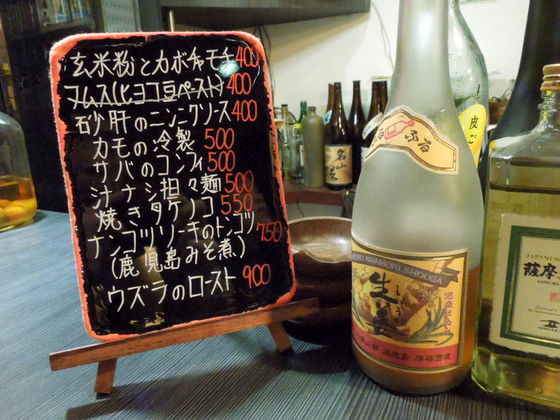 玄米粉とカボチャモチ 400
フムス(ヒヨコ豆ペースト) 400
砂肝のニンニクソース 400
カモの冷製 500
サバのコンフィ 500
汁ナシ担々麺 500
焼きタケノコ 550
ナンコツソーキのトンコツ 750
(鹿児島みそ煮)
ウズラのロースト 900
AWAMORI SHOUGA
生姜
しょうが
泡盛仕込
名山
皮ご
薩摩